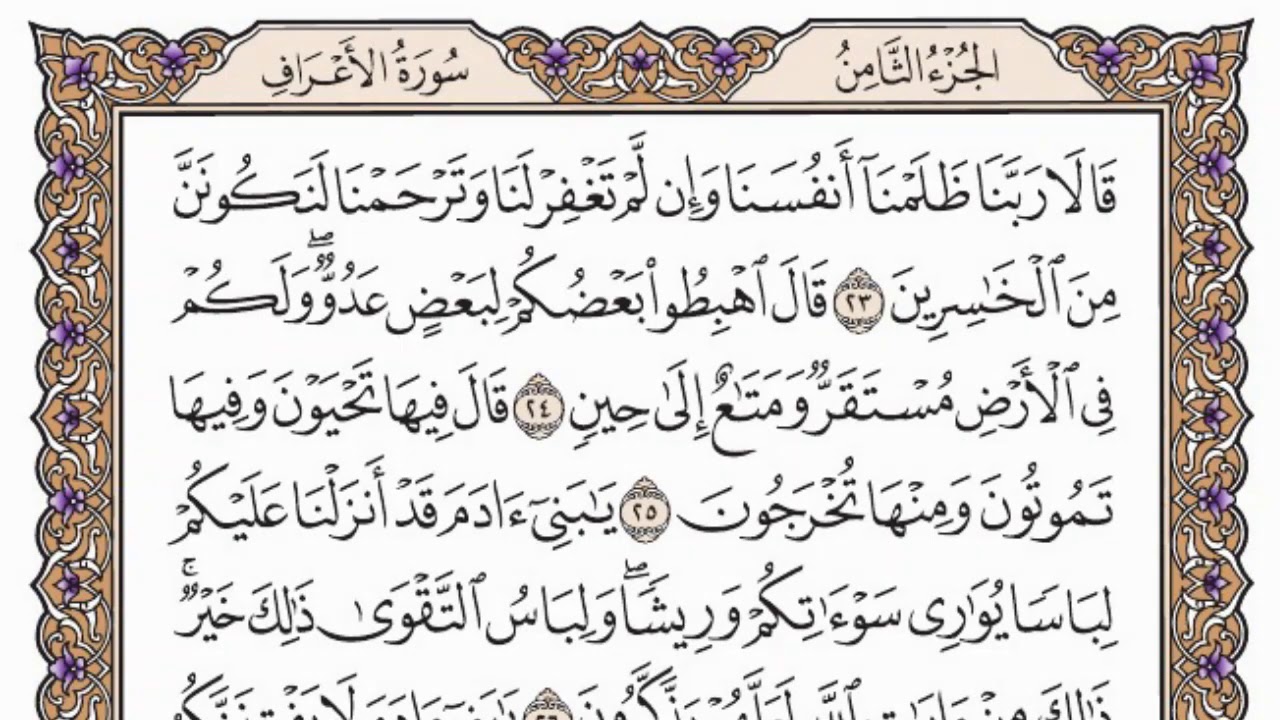 الجُزْءُ الثَّامِنُ
سُورَةُ الأَعْرَافِ
قَالَا رَبَّنَا ظَلَمْنَآ أَنفُسَنَا وَإِن لَّمْ تَغْفِرْ لَنَا وَتَرْحَمْنَا لَنَكُونَنَّ
مِنَ ٱلْخَٰسِرِينَ ٢٣ قَالَ ٱهْبِطُوا۟ بَعْضُكُمْ لِبَعْضٍ عَدُوٌّ ۖ وَلَكُمْ
فِى ٱلْأَرْضِ مُسْتَقَرٌّ وَمَتَٰعٌ إِلَىٰ حِينٍ ٢٤ قَالَ فِيهَا تَحْيَوْنَ وَفِيهَا
تَمُوتُونَ وَمِنْهَا تُخْرَجُونَ ٢٥ يَٰبَنِىٓ ءَادَمَ قَدْ أَنزَلْنَا عَلَيْكُمْ
لِبَاسًا يُوَٰرِى سَوْءَٰتِكُمْ وَرِيشًا ۖ وَلِبَاسُ ٱلتَّقْوَىٰ ذَٰلِكَ خَيْرٌ ۚ
ذَٰلِكَ مِنْ ءَايَٰتِ ٱللَّهِ لَعَلَّهُمْ يَذَّكَّرُونَ ٢٦ يَٰبَنِىٓ ءَادَمَ لَا يَفْتِنَنَّكُمُ